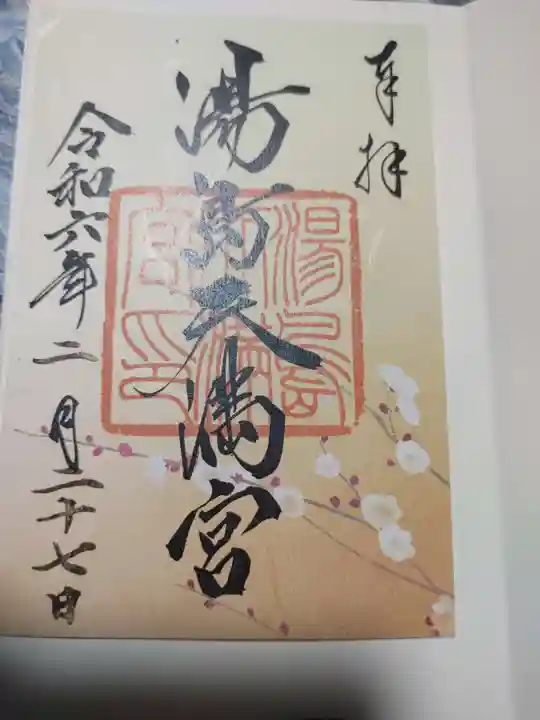 奉拝
湯島天満宮
湯島天満宮印
令和六年二月二十七日